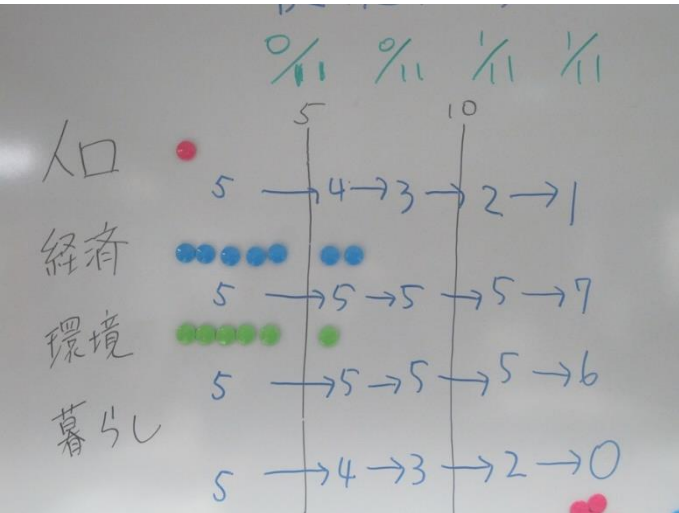 0/11 0/11 1/11 1/11
5 10
人口 5 → 4 → 3 → 2 → 1
経済 5 → 5 → 5 → 5 → 7
環境 5 → 5 → 5 → 5 → 6
暮らし 5 → 4 → 3 → 2 → 0